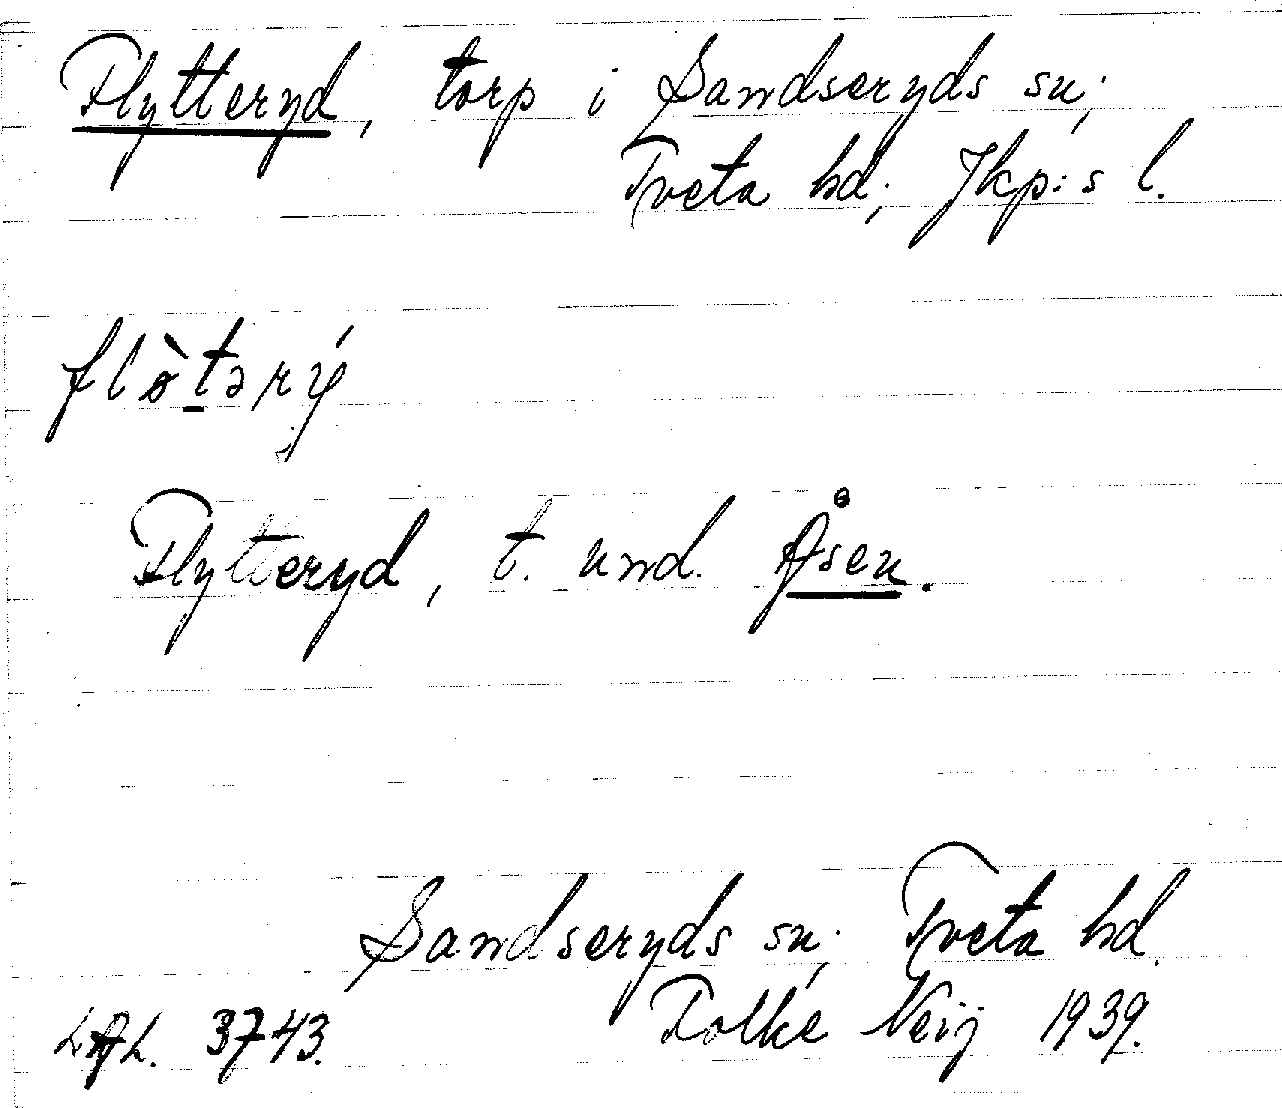 Flytteryd, torp i Sandseryds sn;
Tveta hd; Jkp:s l.
flø̀tərý
Flytteryd, t. und. Åsen.
Sandseryds sn; Tveta hd.
Folke Neij 1939.
LAL. 3743.